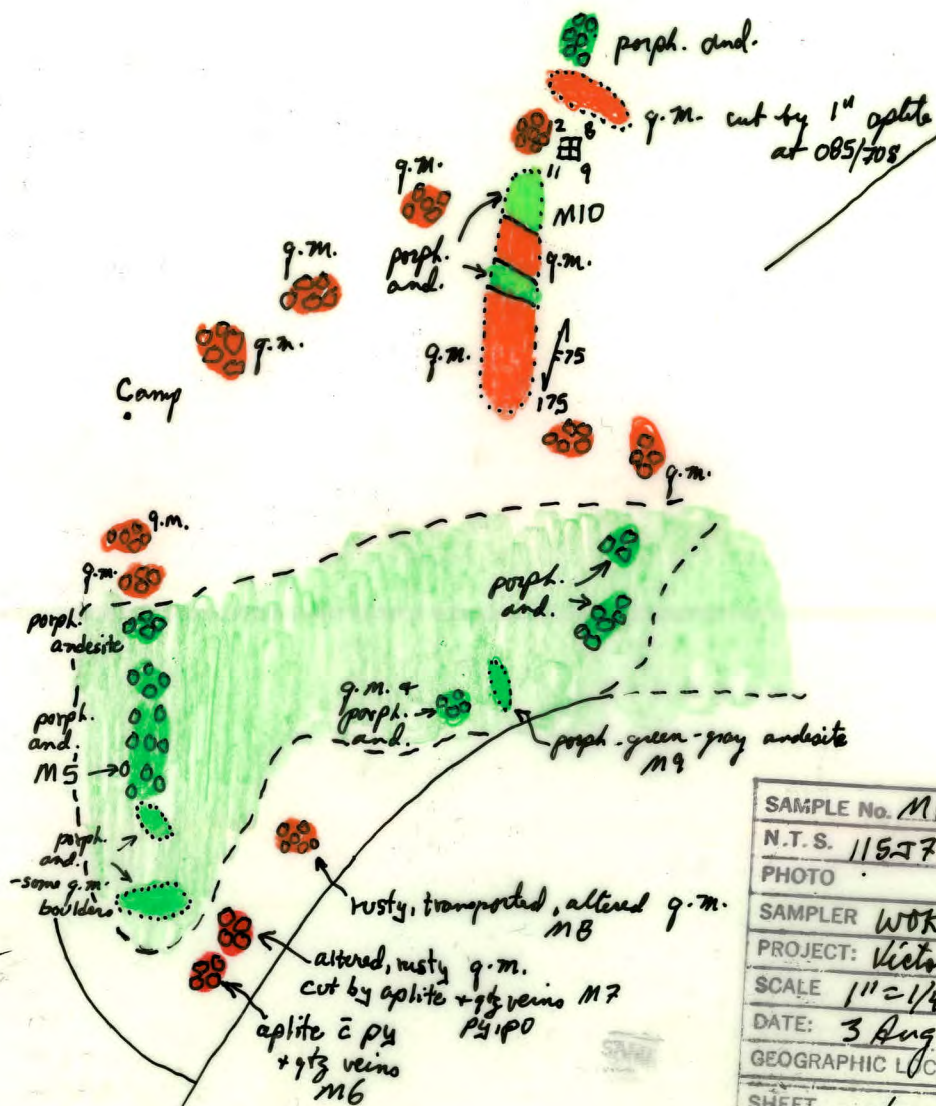 porph. and.
q.m. cut by 1" aplite
at 085/70S
12 8
11 9
q.m.
M10
porph.
and.
q.m.
q.m.
q.m.
q.m.
75
175
Camp
q.m.
q.m.
q.m.
porph.
andesite
porph.
and.
porph.
and.
M5
q.m. +
porph.
and.
porph-green-gray andesite
M9
porph.
and.
-some q.m.
boulders
rusty, transported, altered q.m.
M8
altered, rusty q.m.
cut by aplite + qtz veins M7
py, po
aplite c̄ py
+ qtz veins
M6
SAMPLE No. M
N.T.S. 115J7
PHOTO
SAMPLER WOK
PROJECT: Victo
SCALE 1"=1/4
DATE: 3 Aug
GEOGRAPHIC LOC
SHEET